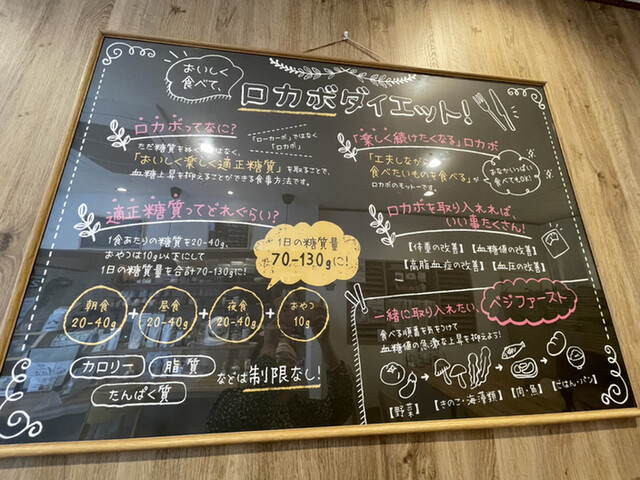 おいしく
食べて、
ロカボダイエット!
ロカボってなに?
「ローカーボ」ではなく
「ロカボ」
ただ糖質を抜くではなく、
「おいしく楽しく適正糖質」を取ることで、
血糖上昇を抑えることができる食事方法です。
適正糖質ってどれぐらい?
1食あたりの糖質を20-40g、
おやつは10g以下にして
1日の糖質量を合計70-130gに!
1日の糖質量
70-130gに!
朝食
20-40g
+
昼食
20-40g
+
夜食
20-40g
+
おやつ
10g
カロリー
脂質
たんぱく質
などは制限なし!
「楽しく続けたくなる」ロカボ
「工夫しながら
食べたいものを食べる」が
ロカボのモットーです。
おなかいっぱい
食べてもOK!
ロカボを取り入れれば、
いい事たくさん!
【体重の改善】【血糖値の改善】
【高脂血症の改善】【血圧の改善】
一緒に取り入れたい
ベジファースト
食べる順番を気をつけて
血糖値の急激な上昇を抑えよう!
【野菜】
【きのこ・海藻類】
【肉・魚】
【ごはん・パン】